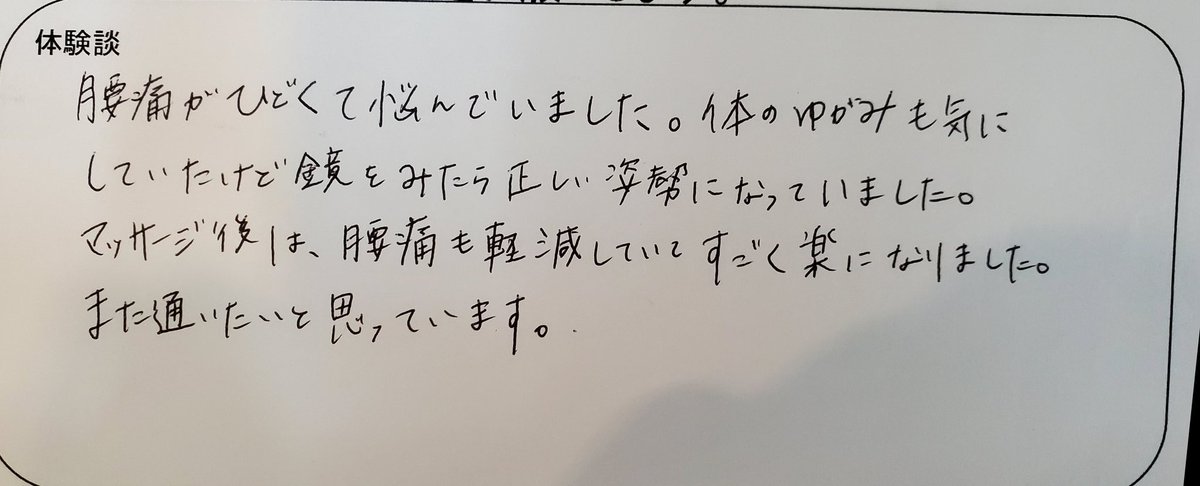 体験談
腰痛がひどくて悩んでいました。体のゆがみも気に
していたけど鏡をみたら正しい姿勢になっていました。
マッサージ後は、腰痛も軽減していてすごく楽になりました。
また通いたいと思っています。